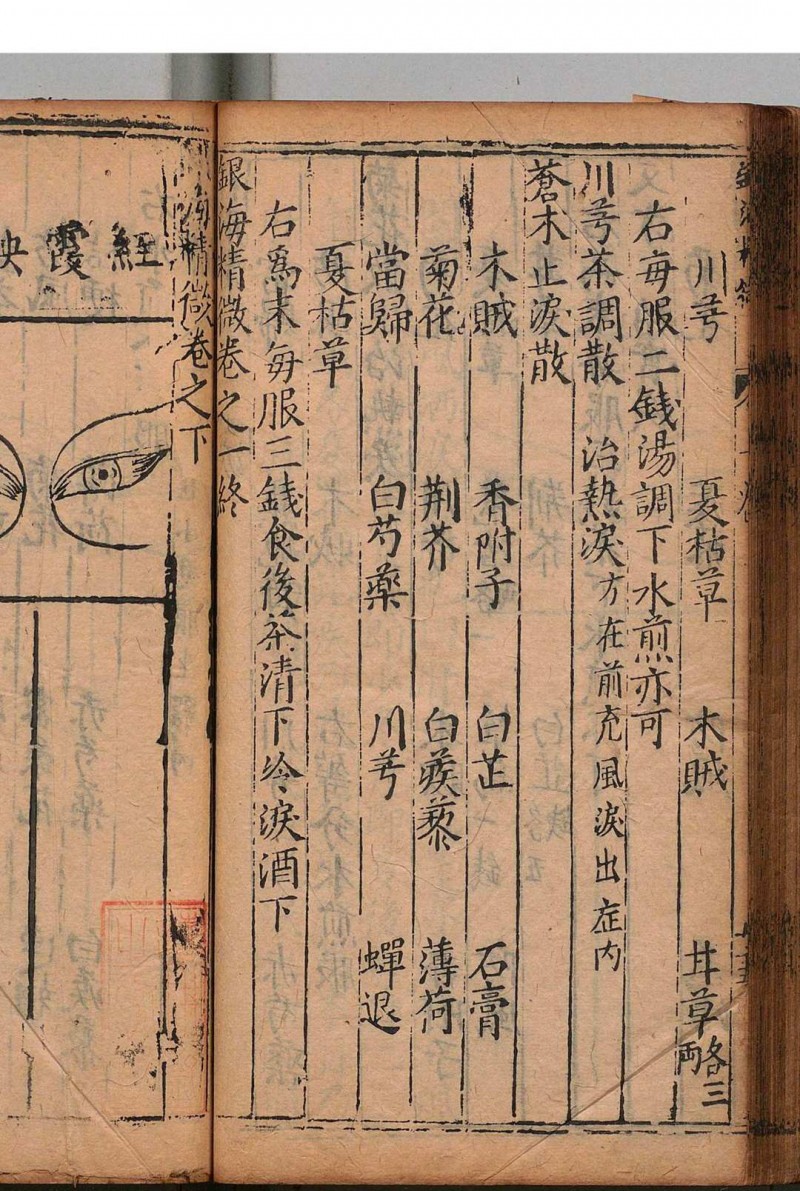 川芎　夏枯草　木賊　甘草各三兩
右每服二錢湯調下水煎亦可
川芎茶調散　治熱淚方在前充風淚出症内
蒼木止淚散
木賊　香附子　白芷　石膏
菊花　荆芥　白蒺藜　薄荷
當歸　白芍藥　川芎　蟬退
夏枯草
右爲末每服三錢食後茶清下冷淚酒下
銀海精微卷之一終
海精微卷之下
經
霞
映